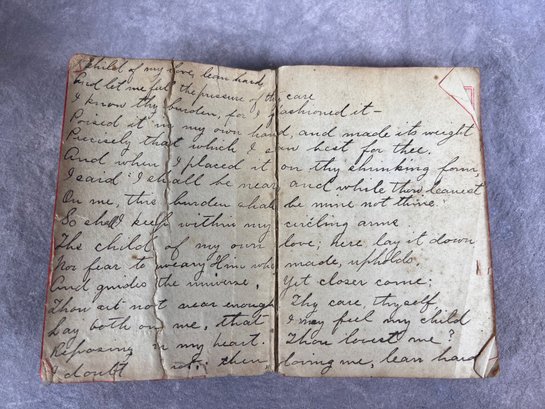 Child of my love, lean hard,
And let me feel the pressure of thy care
I know thy burden, for I fashioned it—
Poised it in my own hand, and made its weight
Precisely that which I saw best for thee.
And when I placed it on thy shrinking form,
I said "I shall be near, and while thou leanest
On me, this burden shall be mine not thine."
So shall I keep within my circling arms
The child of my own love; here lay it down
Nor fear to weary Him who made, upholds
And guides the universe, Yet closer come;
Thou art not near enough Thy care, thyself
Lay both on me, that I may feel my child
Reposing in my heart. Thou lovest me?
I doubt not; then loving me, lean hard